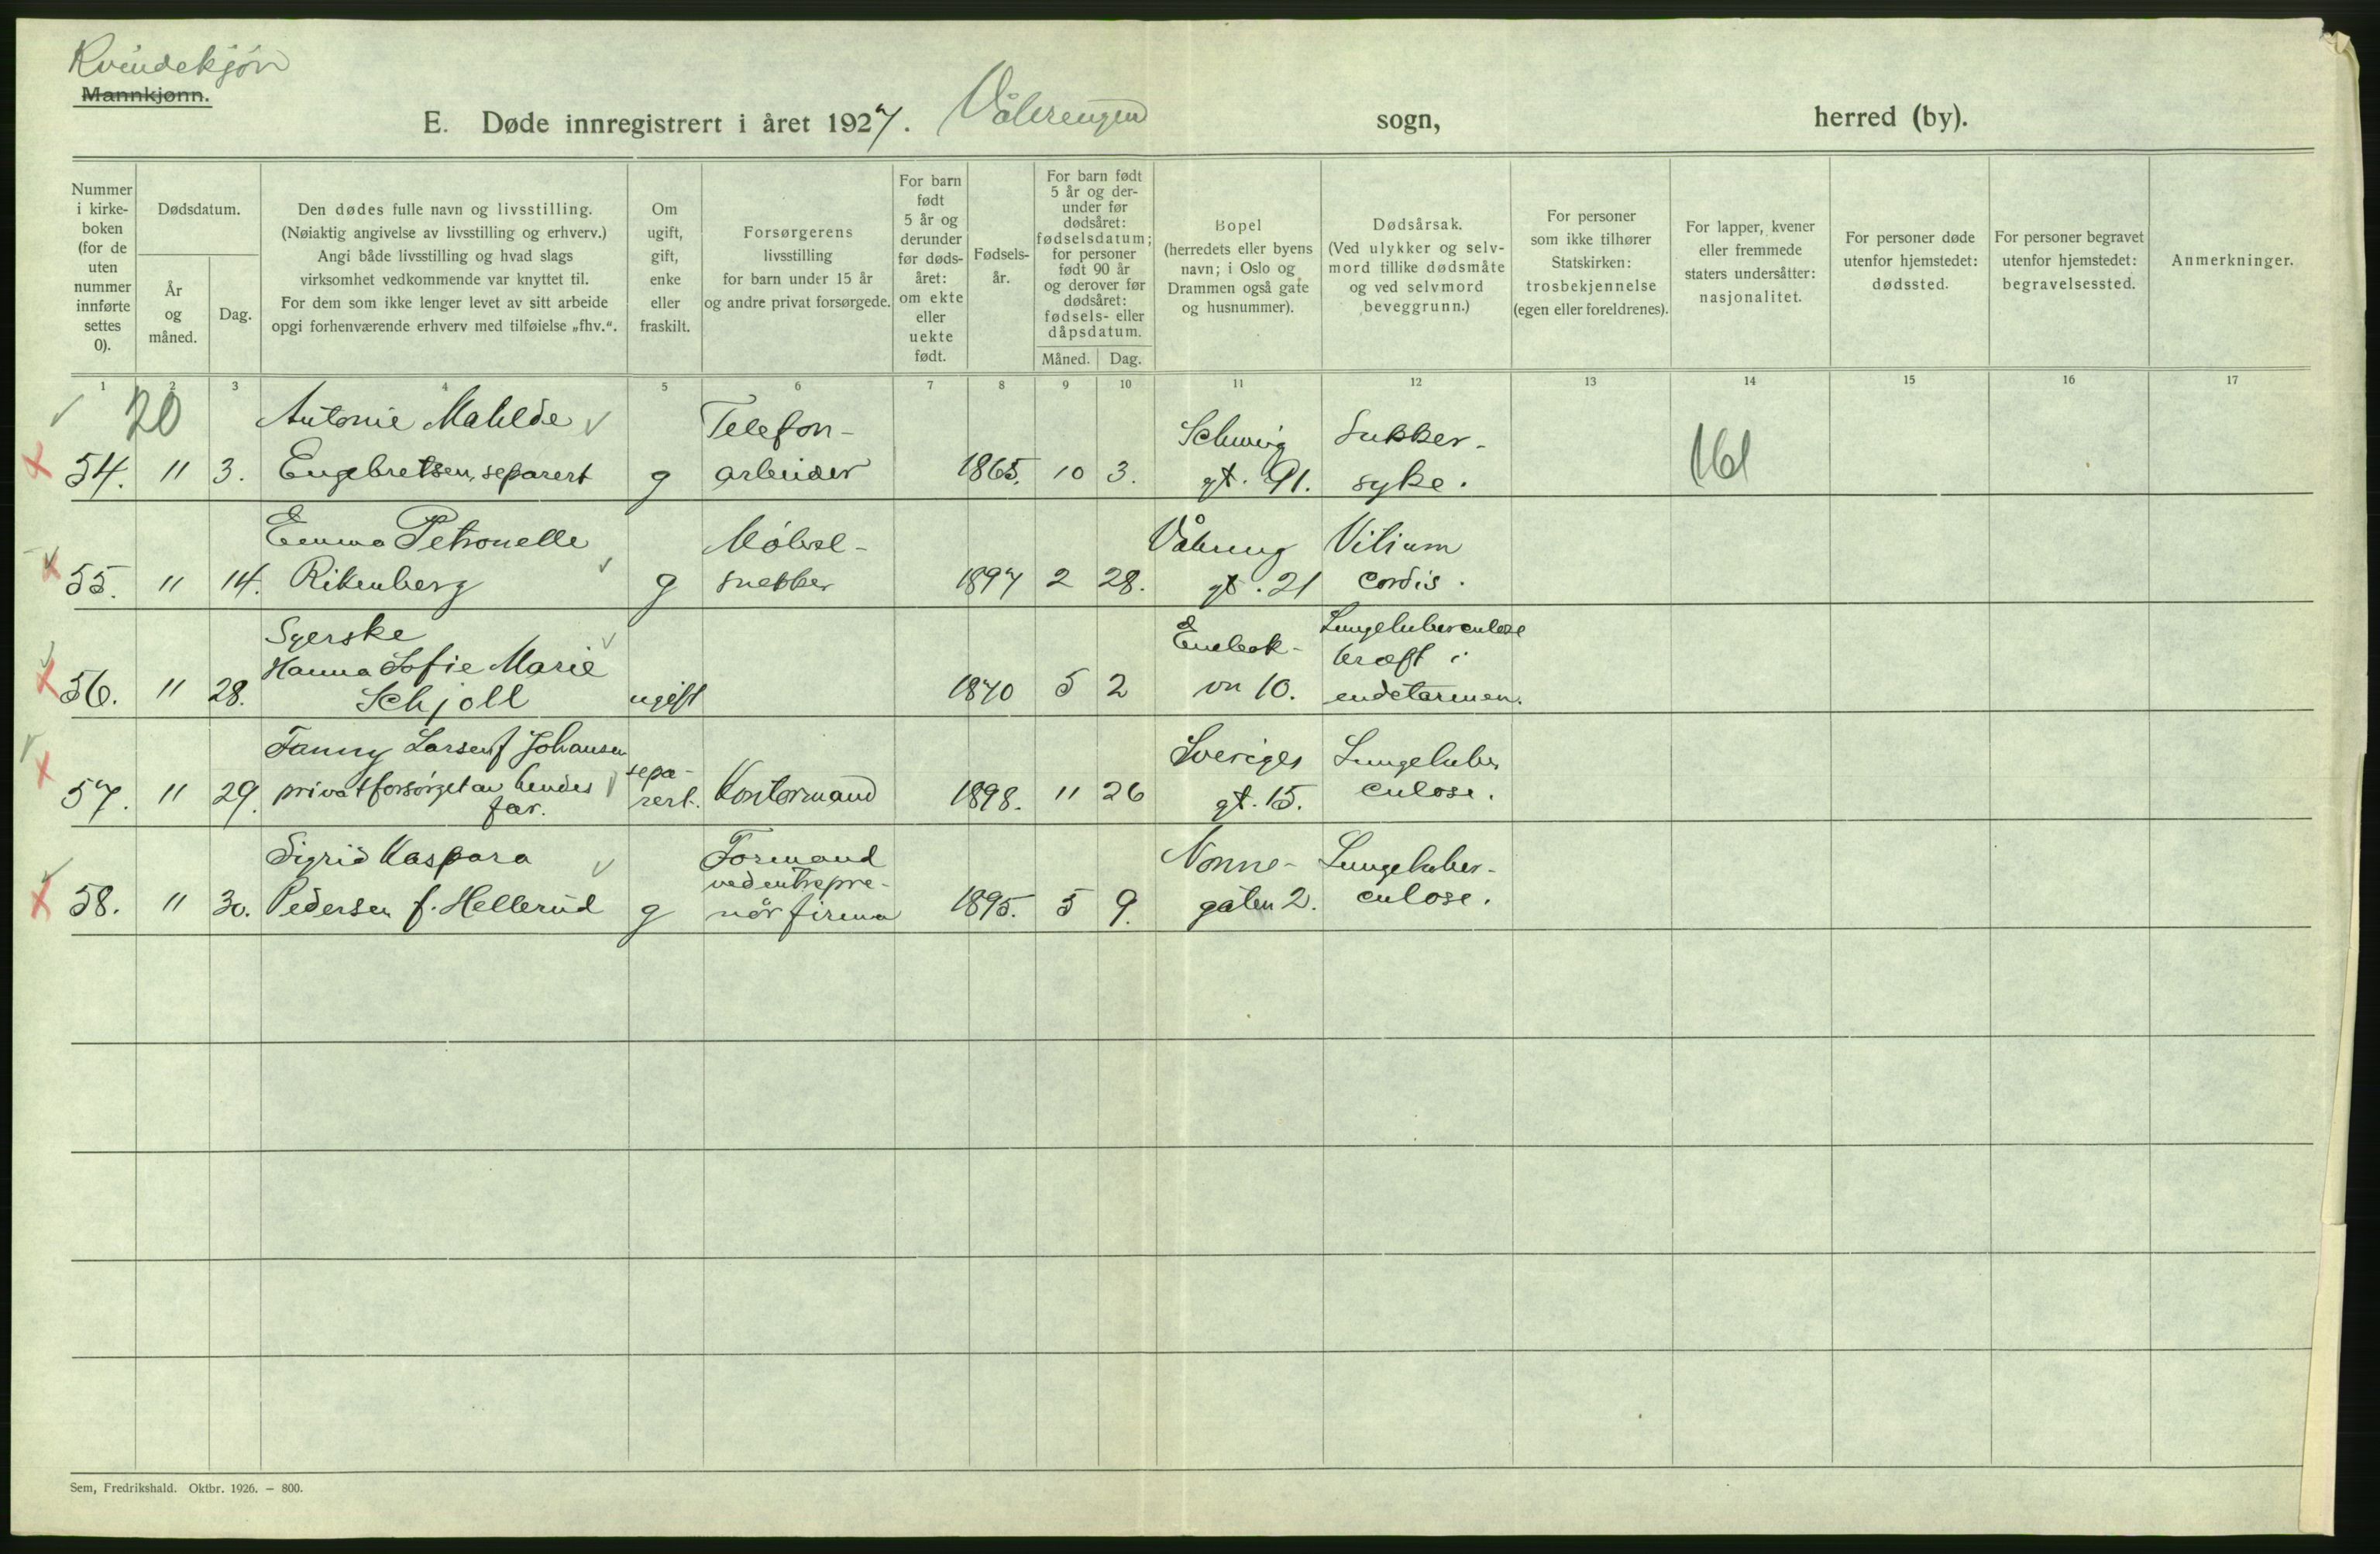 Kvindekjøn
Mannkjønn.
E. Døde innregistrert i året 1927. Vålerengen sogn, herred (by).
Nummer i kirkeboken (for de uten nummer innførte settes 0).
Dødsdatum.
År og måned.
Dag.
Den dødes fulle navn og livsstilling.
(Nøiaktig angivelse av livsstilling og erhverv.)
Angi både livsstilling og hvad slags
virksomhet vedkommende var knyttet til.
For dem som ikke lenger levet av sitt arbeide
opgi forhenværende erhverv med tilføielse „fhv.“.
Om ugift, gift, enke eller fraskilt.
Forsørgerens
livsstilling
for barn under 15 år
og andre privat forsørgede.
For barn født 5 år og derunder før dødsåret: om ekte eller uekte født.
Fødselsår.
For barn født
5 år og derunder før
dødsåret:
fødselsdatum;
for personer
født 90 år
og derover før
dødsåret:
fødsels- eller
dåpsdatum.
Måned. Dag.
Bopel
(herredets eller byens
navn; i Oslo og
Drammen også gate
og husnummer).
Dødsårsak.
(Ved ulykker og selvmord tillike dødsmåte
og ved selvmord
beveggrunn.)
For personer
som ikke tilhører
Statskirken:
trosbekjennelse
(egen eller foreldrenes).
For lapper, kvener
eller fremmede
staters undersåtter:
nasjonalitet.
For personer døde
utenfor hjemstedet:
dødssted.
For personer begravet
utenfor hjemstedet:
begravelsessted.
Anmerkninger.
1 2 3 4 5 6 7 8 9 10 11 12 13 14 15 16 17
20 Antonie Matilde Telefon- Schweig Sukker- 161
54. 11 3. Engebretsen, separert g arbeider 1865. 10 3. gt. 91. syke.
Emma Petronelle Møbel- Vålereng Vitium
55. 11 14. Rikenberg g snekker 1897 2 28. gt. 21 cordis.
Syerske Lungetuberculose
Hanna Sofie Marie Enebak- kræft i
56. 11 28. Schjoll ugift 1870 5 2 vn 10. endetarmen.
Fanny Larsen f Johansen sepa- Sveriges Lungetuber
57. 11 29. privat forsørget av hendes rert. Kontormand 1898. 11 26 gt. 15. culose.
far.
Sigrid Kaspara Formand Nonne- Lungetuber-
ved entrepre-
58. 11 30. Pedersen f. Hellerud g nør firma 1895. 5 9. gaten 2. culose.
Sem, Fredrikshald. Oktbr. 1926. – 800.